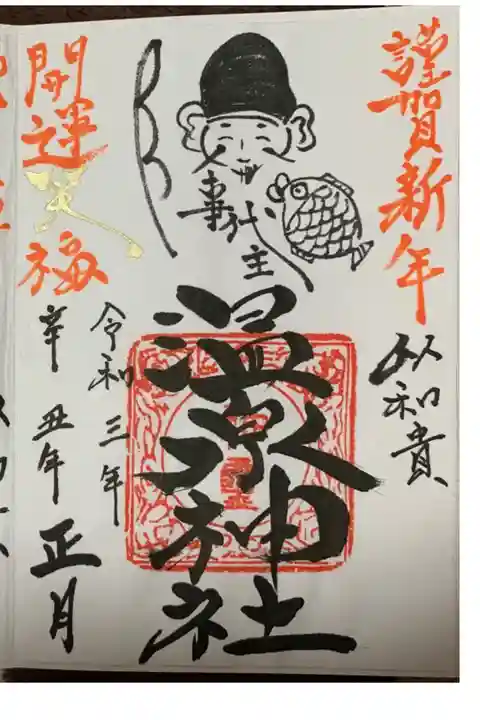 謹賀新年
以和貴
事代主
温泉神社
令和三年
辛丑年正月
開運
福